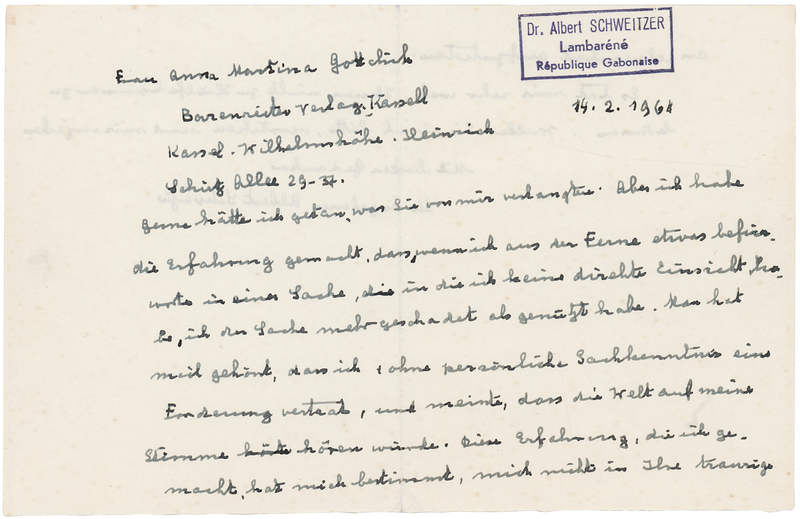 Dr. Albert SCHWEITZER
Lambaréné
République Gabonaise
Frau Anna Martina Gottlich
Barenreiter Verlag. Kassell
14. 2. 1961
Kassel. Wilhelmshöhe. Heinrich
Schütz Allee 29-37.
Gerne hätte ich getan, was Sie von mir verlangten. Aber ich habe
die Erfahrung gemacht, dass, wenn ich aus der Ferne etwas befür-
worte in einer Sache, die in die ich keine direkte Einsicht ha-
be, ich der Sache mehr geschadet als genützt habe. Man hat
gehört, dass ich ohne persönliche Sachkenntnis eine
Forderung vertrat, und meinte, dass die Welt auf meine
Stimme hören würde. Diese Erfahrung, die ich ge-
macht, hat mich bestimmt, mich nicht in Ihre traurige